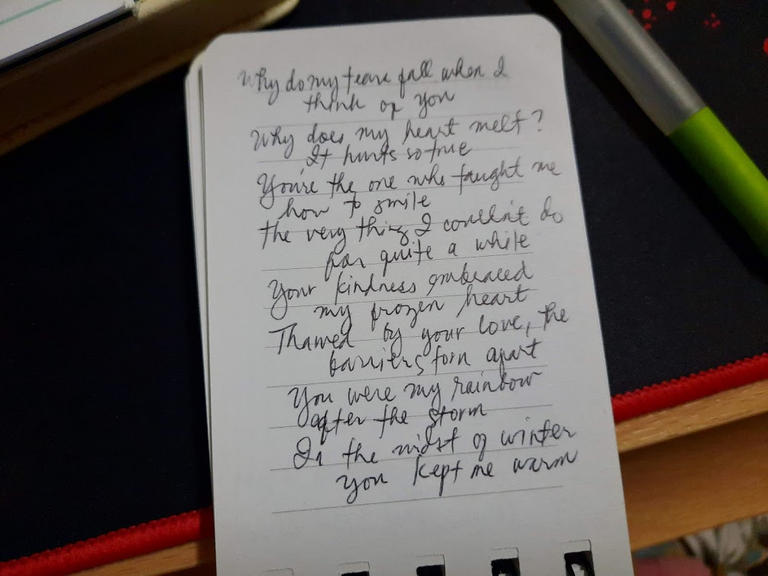 Why do my tears fall when I
think of you
Why does my heart melt?
It hurts so true
You're the one who taught me
how to smile
the very thing I couldn't do
for quite a while
Your kindness embraced
my frozen heart
Thawed by your love, the
barriers torn apart
You were my rainbow
after the storm
In the midst of winter
you kept me warm